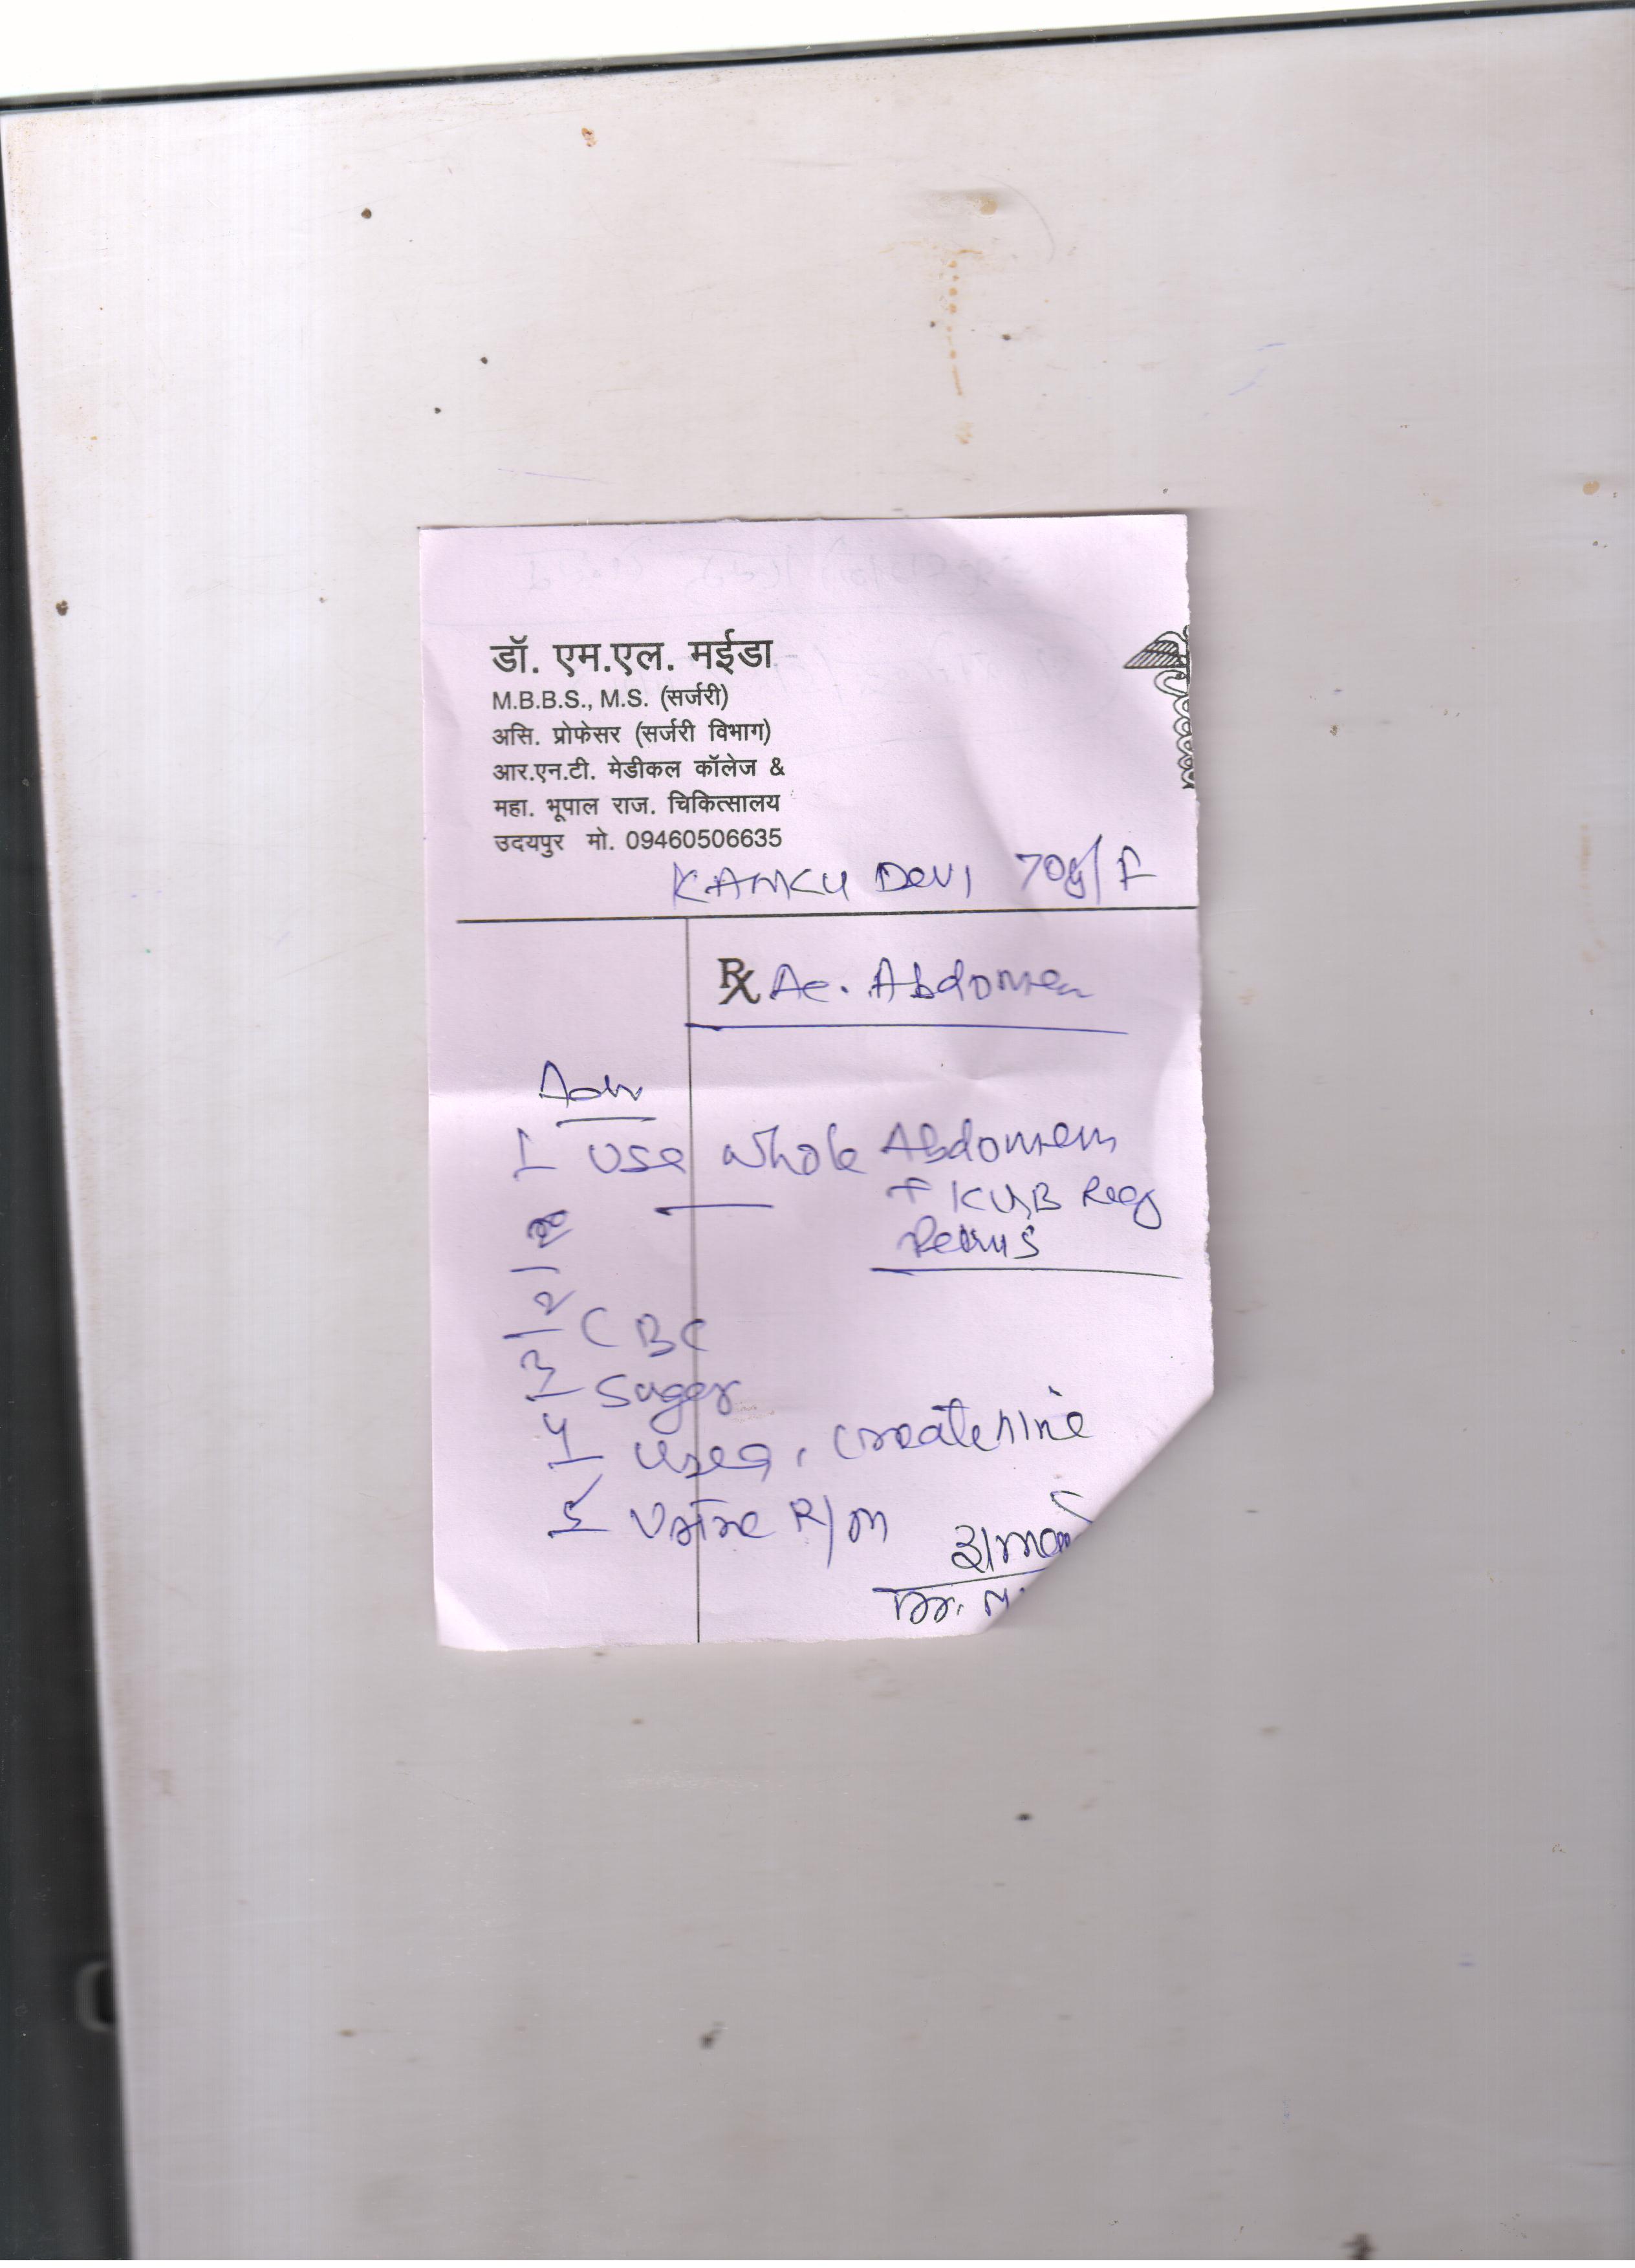 डॉ. एम.एल. मईडा
M.B.B.S., M.S. (सर्जरी)
असि. प्रोफेसर (सर्जरी विभाग)
आर.एन.टी. मेडीकल कॉलेज &
महा. भूपाल राज. चिकित्सालय
उदयपुर मो. 09460506635
KANKU DEVI 70y/F
Rx Ac. Abdomen
Adv
1 USG whole Abdomen
+ KUB Reg
Pelvis
2 CBC
3 Suger
4 Urea, Createnine
5 Urine R/M
Dr. M